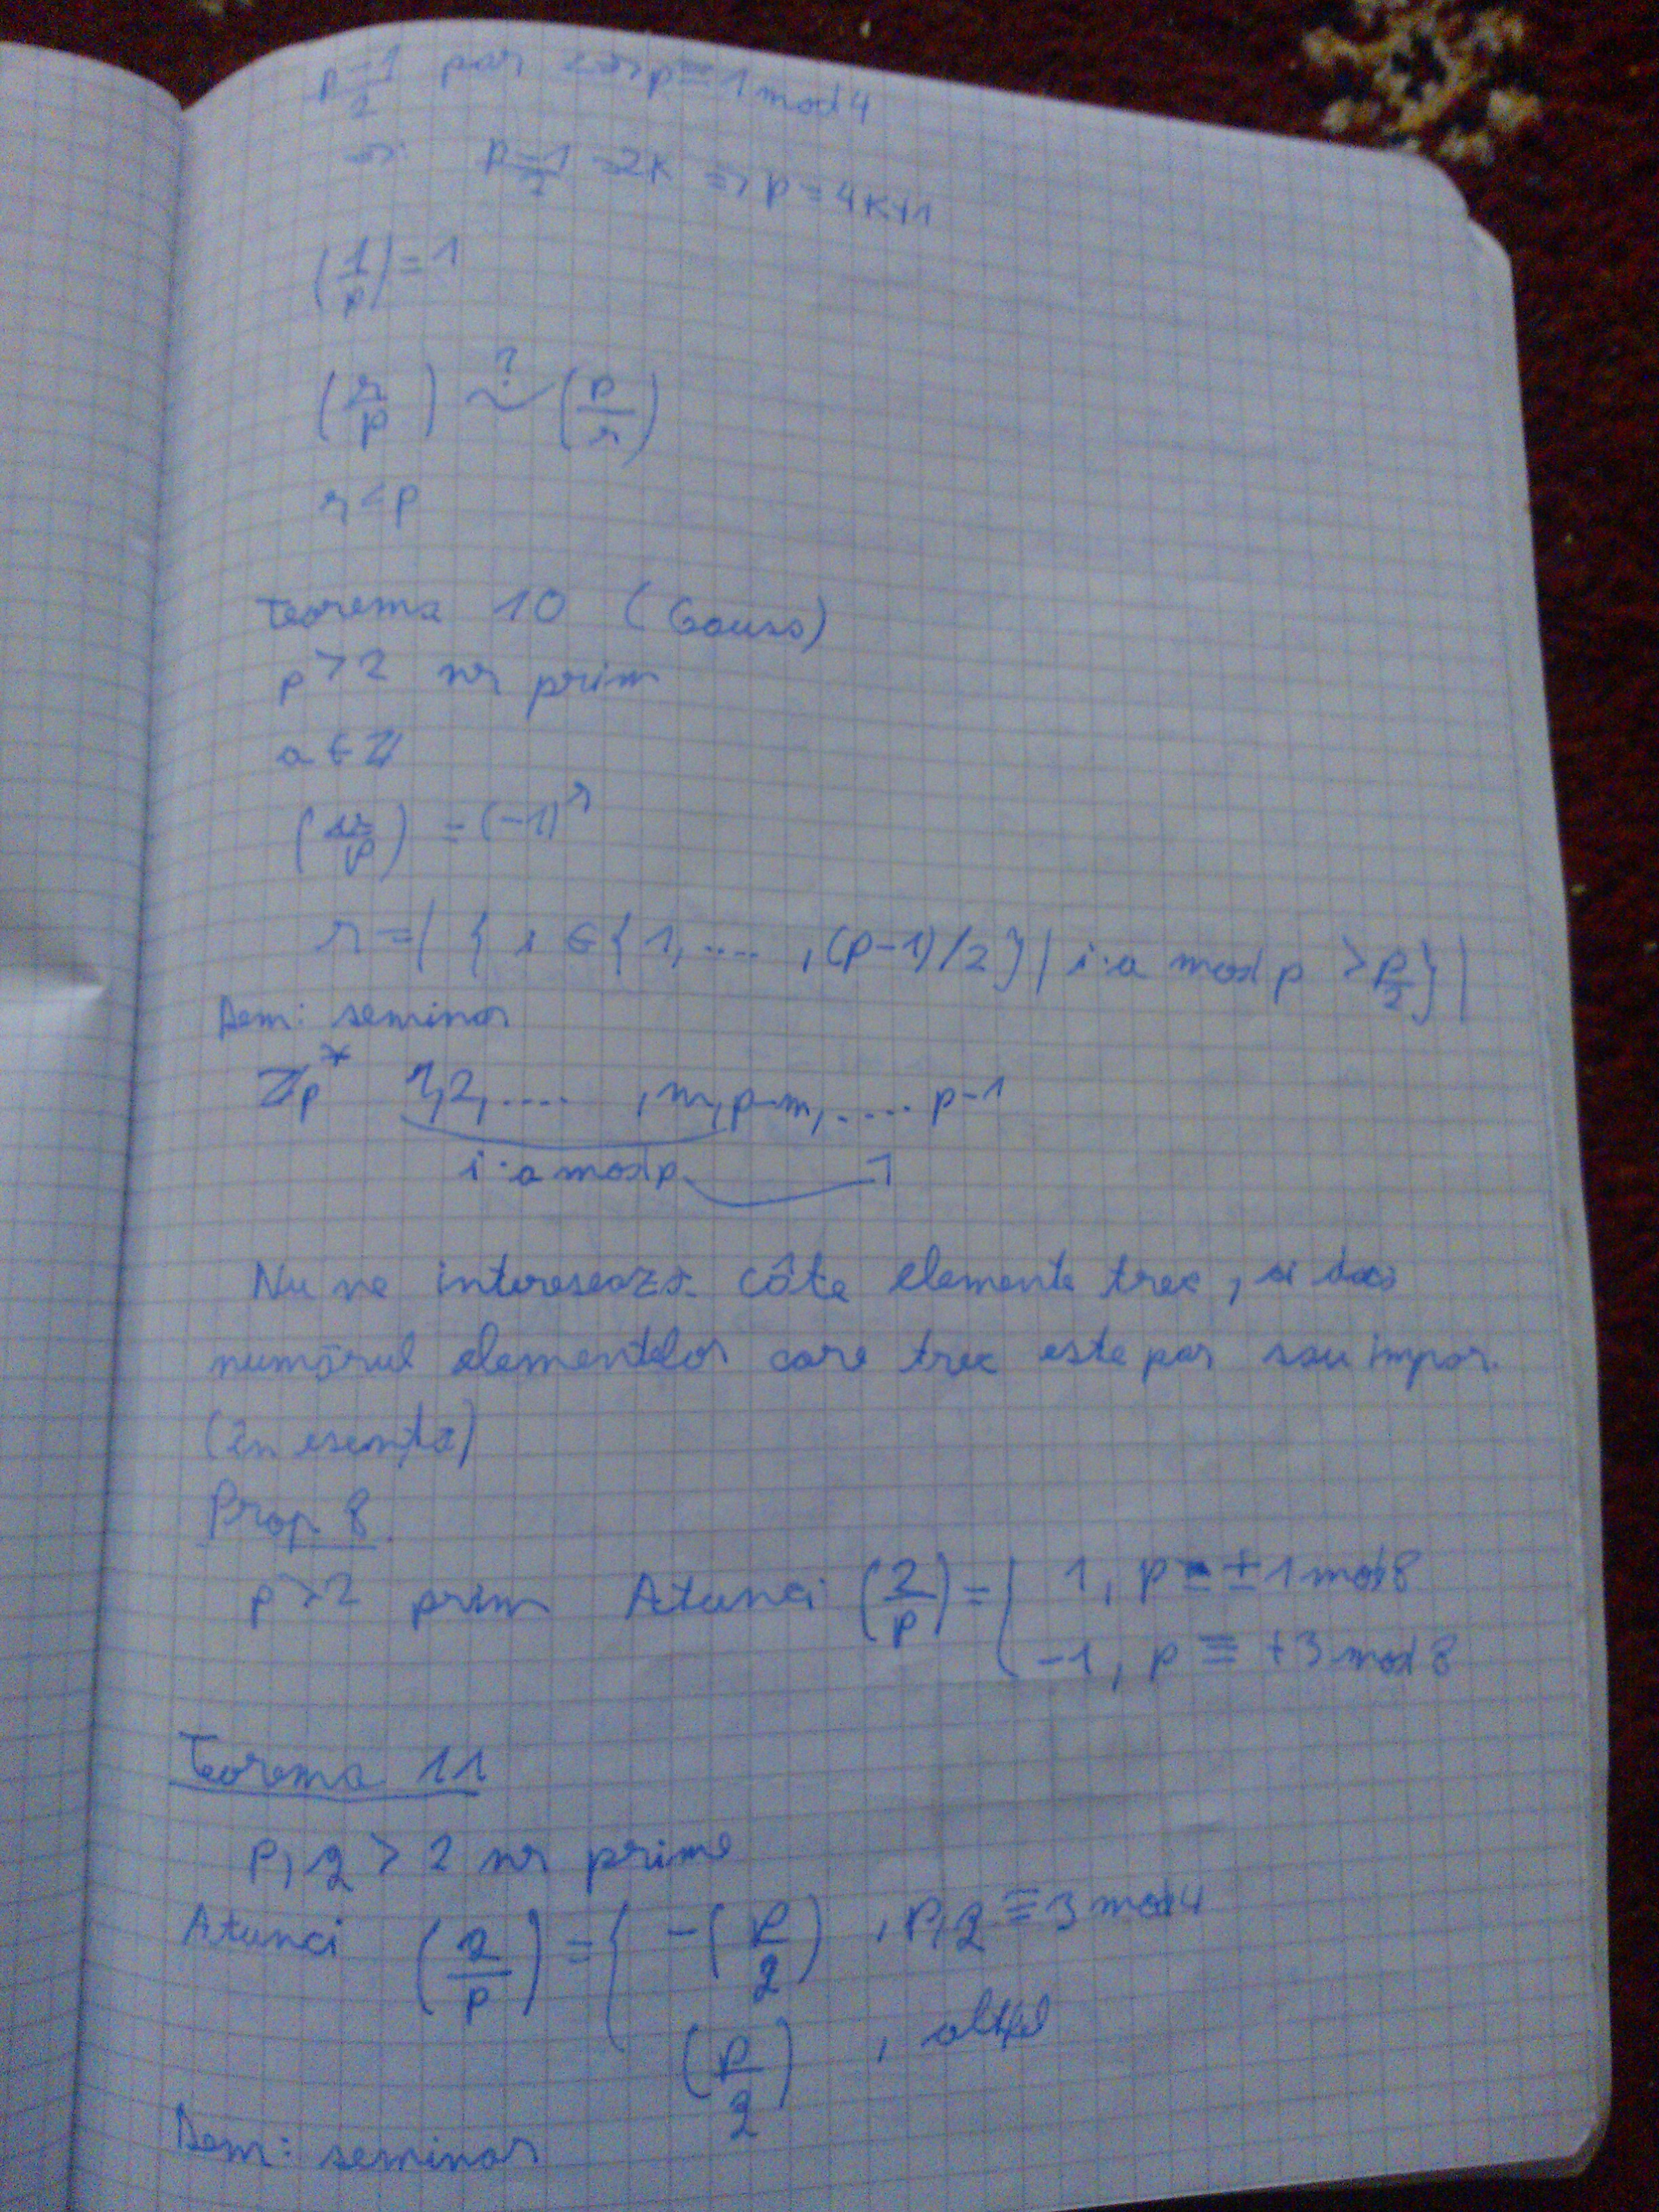 p-1/2 par <=> p ≡ 1 mod 4
p-1/2 = 2k => p = 4k+1
(1/p) = 1
(r/p) ~? (p/r)
r < p
Teorema 10 (Gauss)
p > 2 nr prim
a ∈ ℤ
(a/p) = (-1)^r
r = | { i ∈ {1, .... , (p-1)/2} | i·a mod p > p/2 } |
Dem: seminar
ℤp* 1, 2, .... , m, p-m, ..... p-1
i·a mod p
Nu ne interesează câte elemente trec, ci dacă
numărul elementelor care trec este par sau impar.
(în esență)
Prop 8.
p > 2 prim Atunci (2/p) = { 1, p ≡ ±1 mod 8
-1, p ≡ ±3 mod 8
Teorema 11
p, q > 2 nr prime
Atunci (q/p) = { -(p/q) , p, q ≡ 3 mod 4
(p/q) , altfel
Dem: seminar